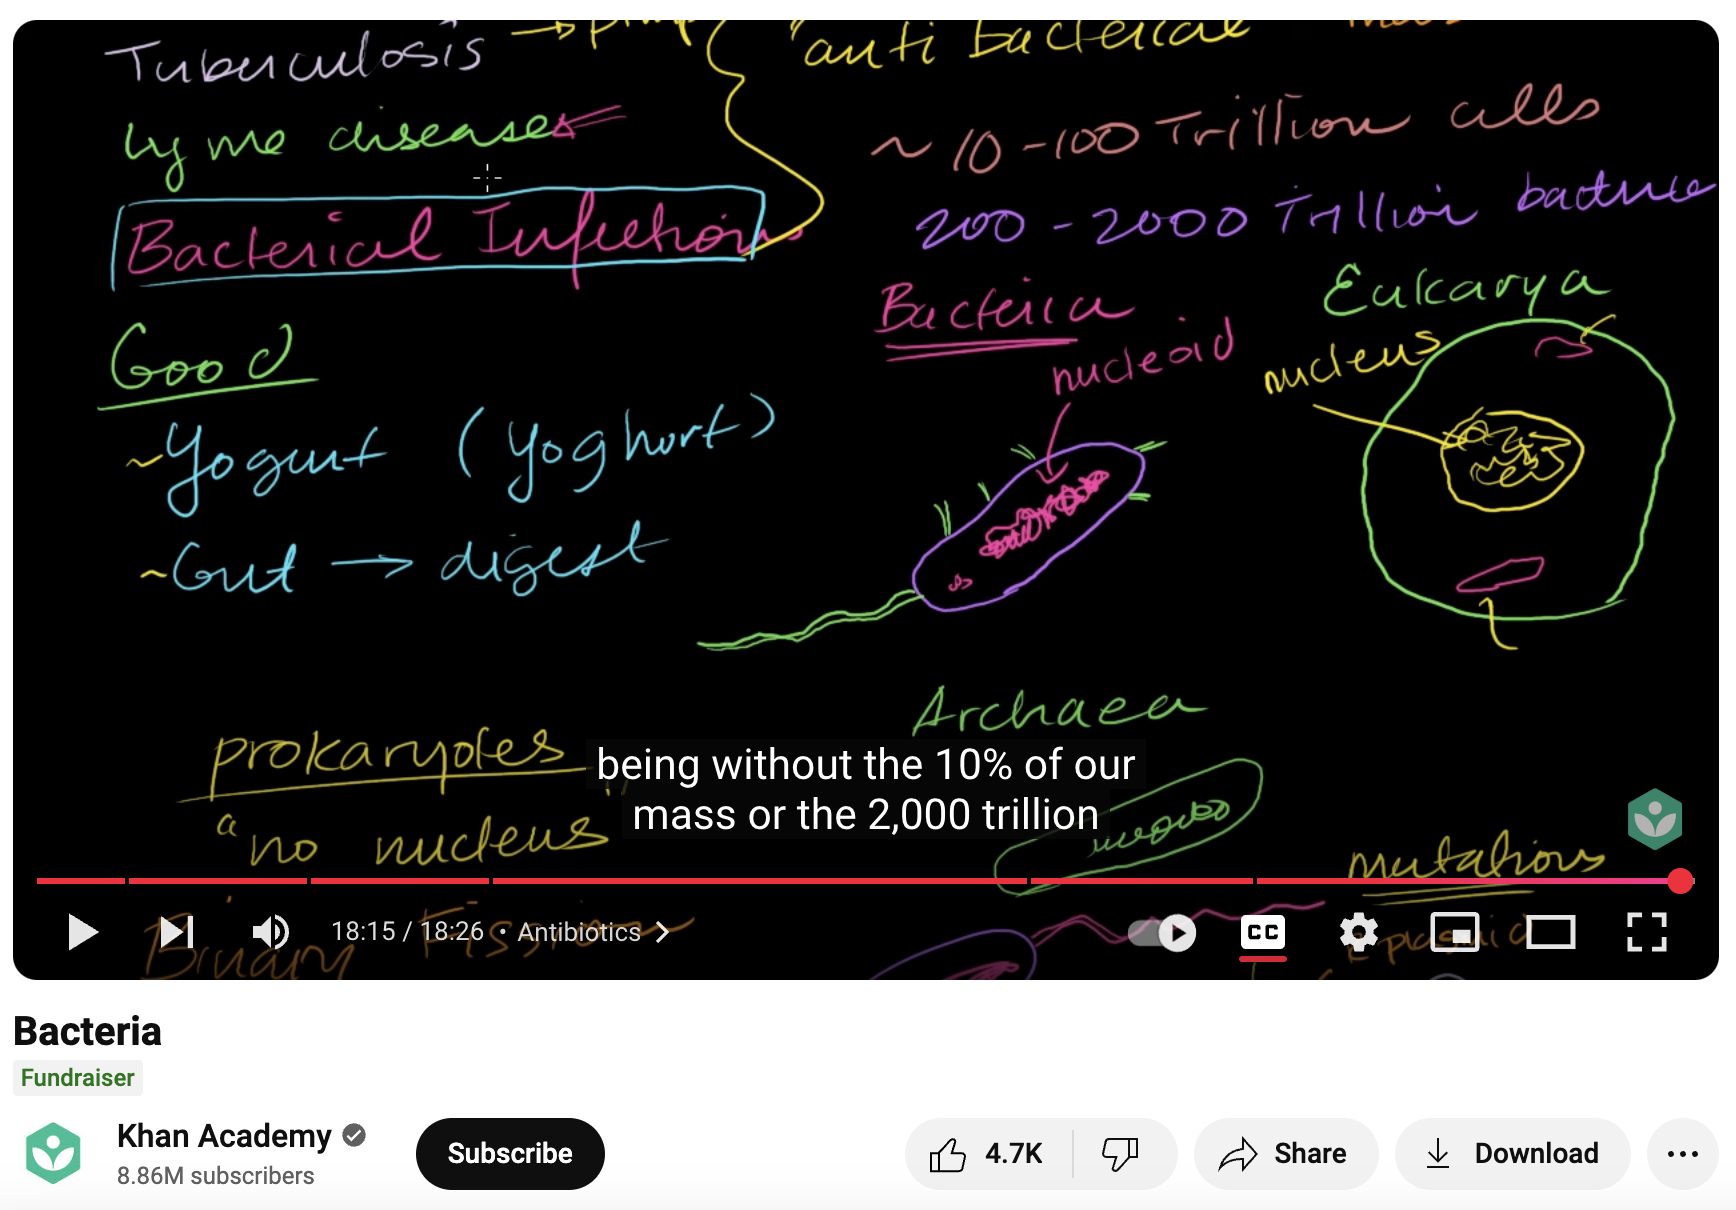 Tuberculosis →
"anti bacterial
lyme disease
~ 10-100 Trillion cells
200 - 2000 Trillion bacteria
Bacterial Infections
Bacteria
Eukarya
nucleoid
nucleus
Good
~Yogurt (Yoghurt)
~Gut → digest
Archaea
prokaryotes
"no nucleus"
being without the 10% of our
mass or the 2,000 trillion
mutations
Binary Fission
plasmid
18:15 / 18:26 • Antibiotics >
CC
Bacteria
Fundraiser
Khan Academy
8.86M subscribers
Subscribe
4.7K
Share
Download